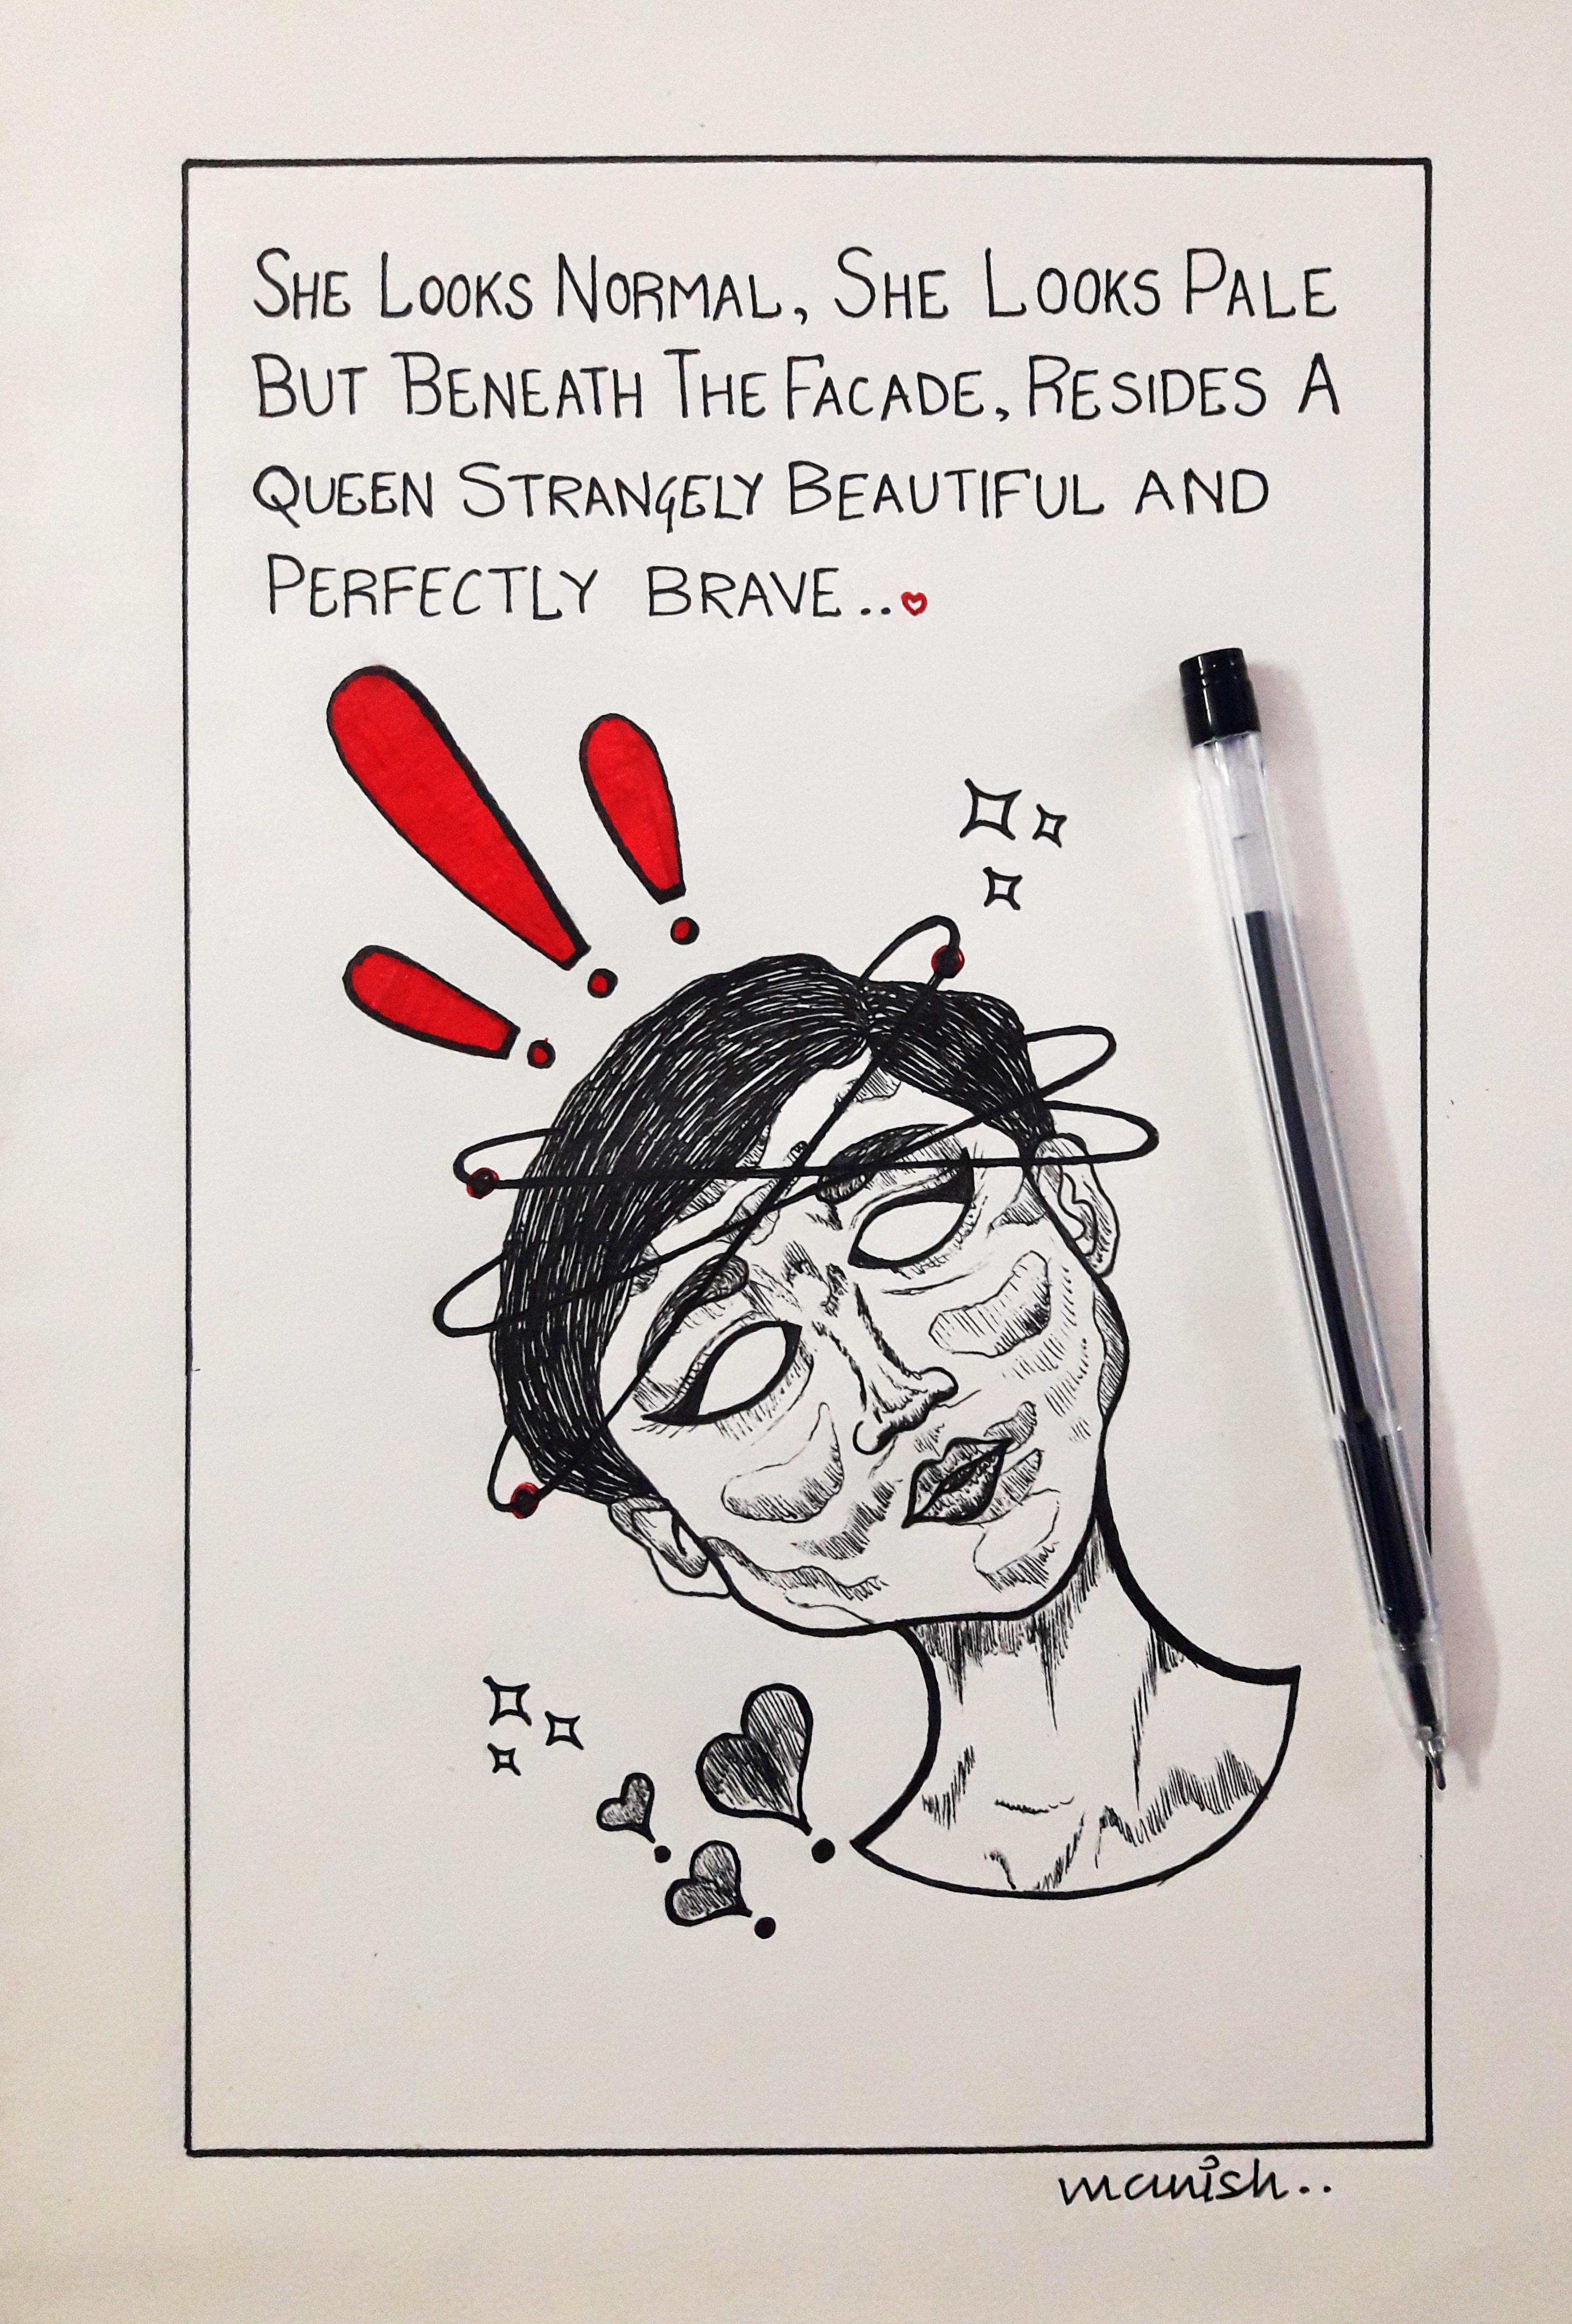 She Looks Normal, She Looks Pale
But Beneath The Facade, Resides A
Queen Strangely Beautiful and
Perfectly brave..
manish..